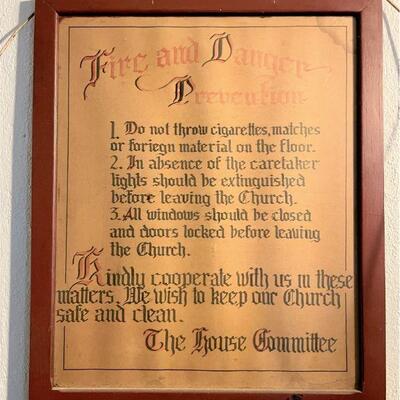 Fire and Danger
Prevention
1. Do not throw cigarettes, matches
or foriegn material on the floor.
2. In absence of the caretaker
lights should be extinguished
before leaving the Church.
3. All windows should be closed
and doors locked before leaving
the Church.
Kindly cooperate with us in these
matters. We wish to keep our Church
safe and clean.
The House Committee